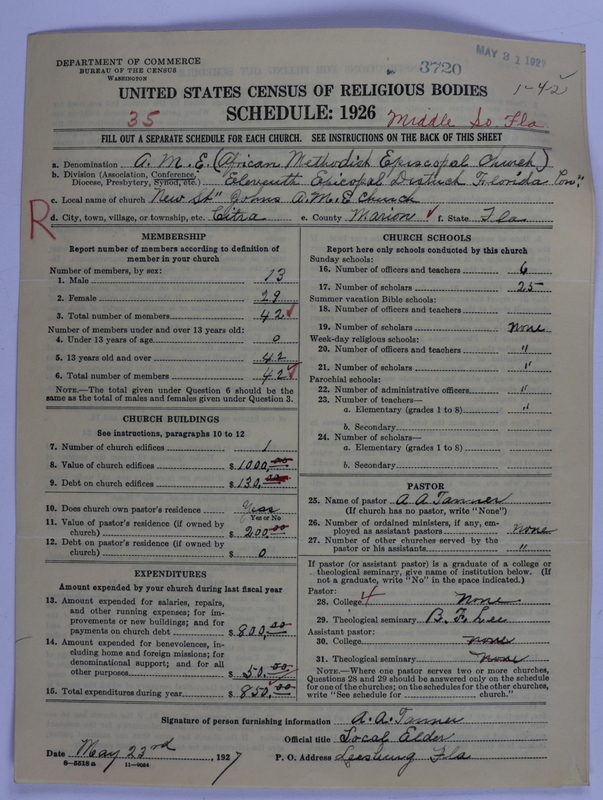 DEPARTMENT OF COMMERCE
BUREAU OF THE CENSUS
WASHINGTON
3720
MAY 31 1927
1-42
UNITED STATES CENSUS OF RELIGIOUS BODIES
35
SCHEDULE: 1926
Middle So. Fla
FILL OUT A SEPARATE SCHEDULE FOR EACH CHURCH. SEE INSTRUCTIONS ON THE BACK OF THIS SHEET
a. Denomination A. M. E. (African Methodist Episcopal Church)
b. Division (Association, Conference, Diocese, Presbytery, Synod, etc.) "Eleventh Episcopal District Florida Con."
c. Local name of church "New St" Johns A.M.E Church
R
d. City, town, village, or township, etc. Citra e. County Marion f. State Fla
MEMBERSHIP
Report number of members according to definition of
member in your church
Number of members, by sex:
1. Male 13
2. Female 29
3. Total number of members 42
Number of members under and over 13 years old:
4. Under 13 years of age 0
5. 13 years old and over 42
6. Total number of members 42
NOTE.—The total given under Question 6 should be the
same as the total of males and females given under Question 3.
CHURCH BUILDINGS
See instructions, paragraphs 10 to 12
7. Number of church edifices 1
8. Value of church edifices $ 1000.00
9. Debt on church edifices $ 130.00
10. Does church own pastor's residence Yess
Yes or No
11. Value of pastor's residence (if owned by
church) $ 200.00
12. Debt on pastor's residence (if owned by
church) $ 0
EXPENDITURES
Amount expended by your church during last fiscal year
13. Amount expended for salaries, repairs,
and other running expenses; for im-
provements or new buildings; and for
payments on church debt $ 800.00
14. Amount expended for benevolences, in-
cluding home and foreign missions; for
denominational support; and for all
other purposes $ 50.00
15. Total expenditures during year $ 850.00
CHURCH SCHOOLS
Report here only schools conducted by this church
Sunday schools:
16. Number of officers and teachers 6
17. Number of scholars 25
Summer vacation Bible schools:
18. Number of officers and teachers
19. Number of scholars None
Week-day religious schools:
20. Number of officers and teachers "
21. Number of scholars "
Parochial schools:
22. Number of administrative officers "
23. Number of teachers—
a. Elementary (grades 1 to 8) "
b. Secondary
24. Number of scholars—
a. Elementary (grades 1 to 8)
b. Secondary
PASTOR
25. Name of pastor A A Tanner
(If church has no pastor, write "None")
26. Number of ordained ministers, if any, em-
ployed as assistant pastors None
27. Number of other churches served by the
pastor or his assistants "
If pastor (or assistant pastor) is a graduate of a college or
theological seminary, give name of institution below. (If
not a graduate, write "No" in the space indicated.)
Pastor:
28. College 4 None
29. Theological seminary B. F. Lee
Assistant pastor:
30. College None
31. Theological seminary None
NOTE.—Where one pastor serves two or more churches,
Questions 28 and 29 should be answered only on the schedule
for one of the churches; on the schedules for the other churches,
write "See schedule for ________ church."
Signature of person furnishing information A. A. Tanner
Official title Local Elder
Date May 23rd, 1927
P. O. Address Leesburg Fla
8-5518 a 11-9084